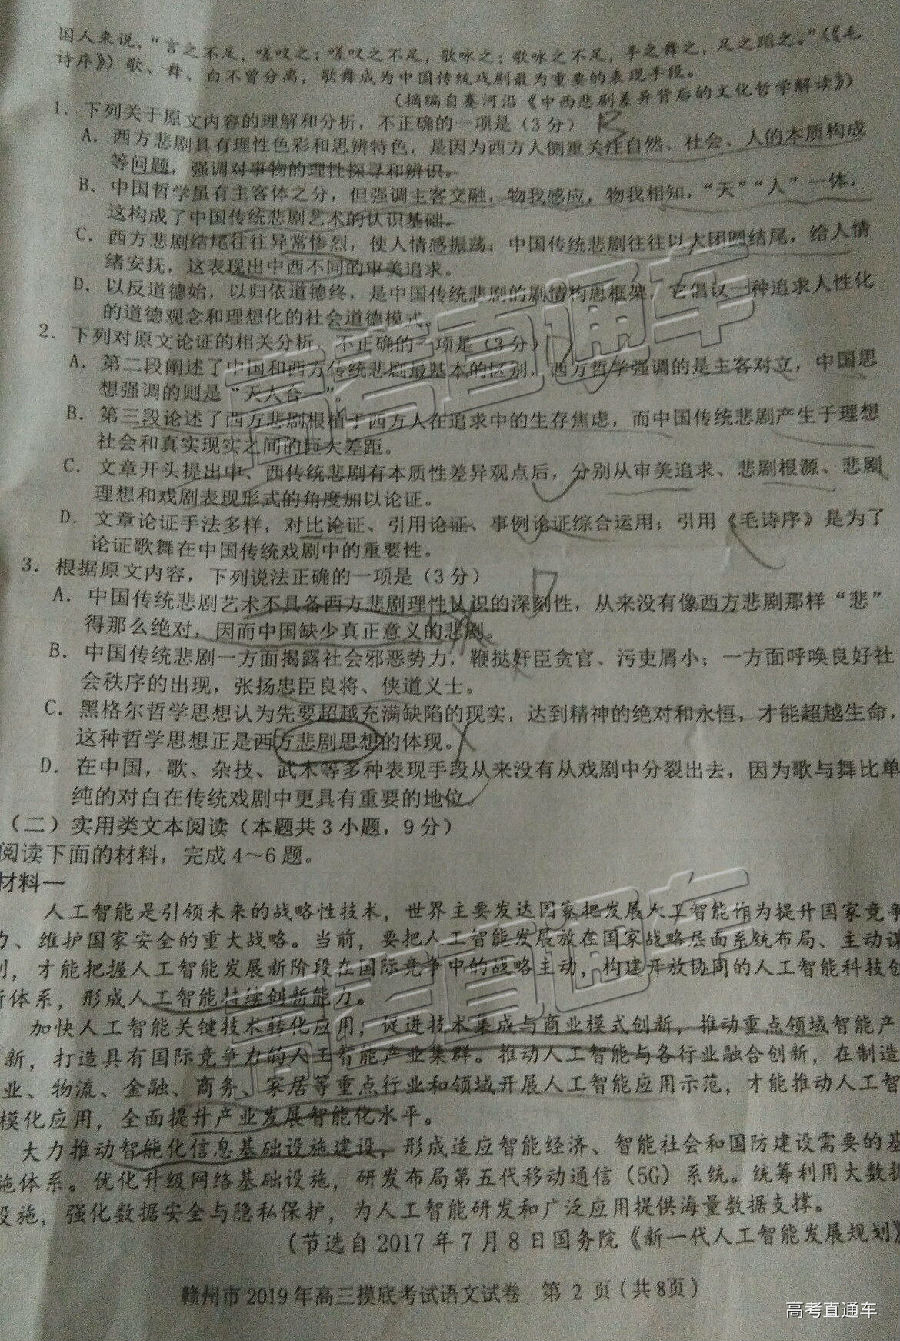 国人来说，“言之不足，嗟叹之；嗟叹之不足，歌咏之；歌咏之不足，手之舞之，足之蹈之。”（《毛
诗序》）歌、舞、白不曾分离，歌舞成为中国传统戏剧最为重要的表现手段。
（摘编自赛河沿《中西悲剧差异背后的文化哲学解读》）
1．下列关于原文内容的理解和分析，不正确的一项是（3分）B
A．西方悲剧具有理性色彩和思辨特色，是因为西方人侧重关注自然、社会、人的本质构成
等问题，强调对事物的理性探寻和辨识。
B．中国哲学虽有主客体之分，但强调主客交融，物我感应，物我相知，“天”“人”一体，
这构成了中国传统悲剧艺术的认识基础。
C．西方悲剧结尾往往异常惨烈，使人情感振荡；中国传统悲剧往往以大团圆结尾，给人情
绪安抚，这表现出中西不同的审美追求。
D．以反道德始，以归依道德终，是中国传统悲剧的剧情构思框架，它倡议一种追求人性化
的道德观念和理想化的社会道德模式。
2．下列对原文论证的相关分析，不正确的一项是（3分）
A．第二段阐述了中国和西方传统悲剧最基本的区别，西方哲学强调的是主客对立，中国思
想强调的则是“天人合一”。
B．第三段论述了西方悲剧根植于西方人在追求中的生存焦虑，而中国传统悲剧产生于理想
社会和真实现实之间的巨大差距。
C．文章开头提出中、西传统悲剧有本质性差异观点后，分别从审美追求、悲剧根源、悲剧
理想和戏剧表现形式的角度加以论证。
D．文章论证手法多样，对比论证、引用论证、事例论证综合运用；引用《毛诗序》是为了
论证歌舞在中国传统戏剧中的重要性。
3．根据原文内容，下列说法正确的一项是（3分）
A．中国传统悲剧艺术不具备西方悲剧理性认识的深刻性，从来没有像西方悲剧那样“悲”
得那么绝对，因而中国缺少真正意义的悲剧。
B．中国传统悲剧一方面揭露社会邪恶势力，鞭挞奸臣贪官、污吏屑小；一方面呼唤良好社
会秩序的出现，张扬忠臣良将、侠道义士。
C．黑格尔哲学思想认为先要超越充满缺陷的现实，达到精神的绝对和永恒，才能超越生命，
这种哲学思想正是西方悲剧思想的体现。
D．在中国，歌、杂技、武术等多种表现手段从来没有从戏剧中分裂出去，因为歌与舞比单
纯的对白在传统戏剧中更具有重要的地位。
（二）实用类文本阅读（本题共3小题，9分）
阅读下面的材料，完成4～6题。
材料一
人工智能是引领未来的战略性技术，世界主要发达国家把发展人工智能作为提升国家竞争
力、维护国家安全的重大战略。当前，要把人工智能发展放在国家战略层面系统布局、主动谋
划，才能把握人工智能发展新阶段在国际竞争中的战略主动，构建开放协同的人工智能科技创
新体系，形成人工智能持续创新能力。
加快人工智能关键技术转化应用，促进技术集成与商业模式创新，推动重点领域智能产
新，打造具有国际竞争力的人工智能产业集群。推动人工智能与各行业融合创新，在制造
业、物流、金融、商务、家居等重点行业和领域开展人工智能应用示范，才能推动人工智
模化应用，全面提升产业发展智能化水平。
大力推动智能化信息基础设施建设，形成适应智能经济、智能社会和国防建设需要的基
施体系。优化升级网络基础设施，研发布局第五代移动通信（5G）系统。统筹利用大数据
设施，强化数据安全与隐私保护，为人工智能研发和广泛应用提供海量数据支撑。
（节选自2017年7月8日国务院《新一代人工智能发展规划》
赣州市2019年高三摸底考试语文试卷 第2页（共8页）
高考直通车
高考直通车
高考直通车